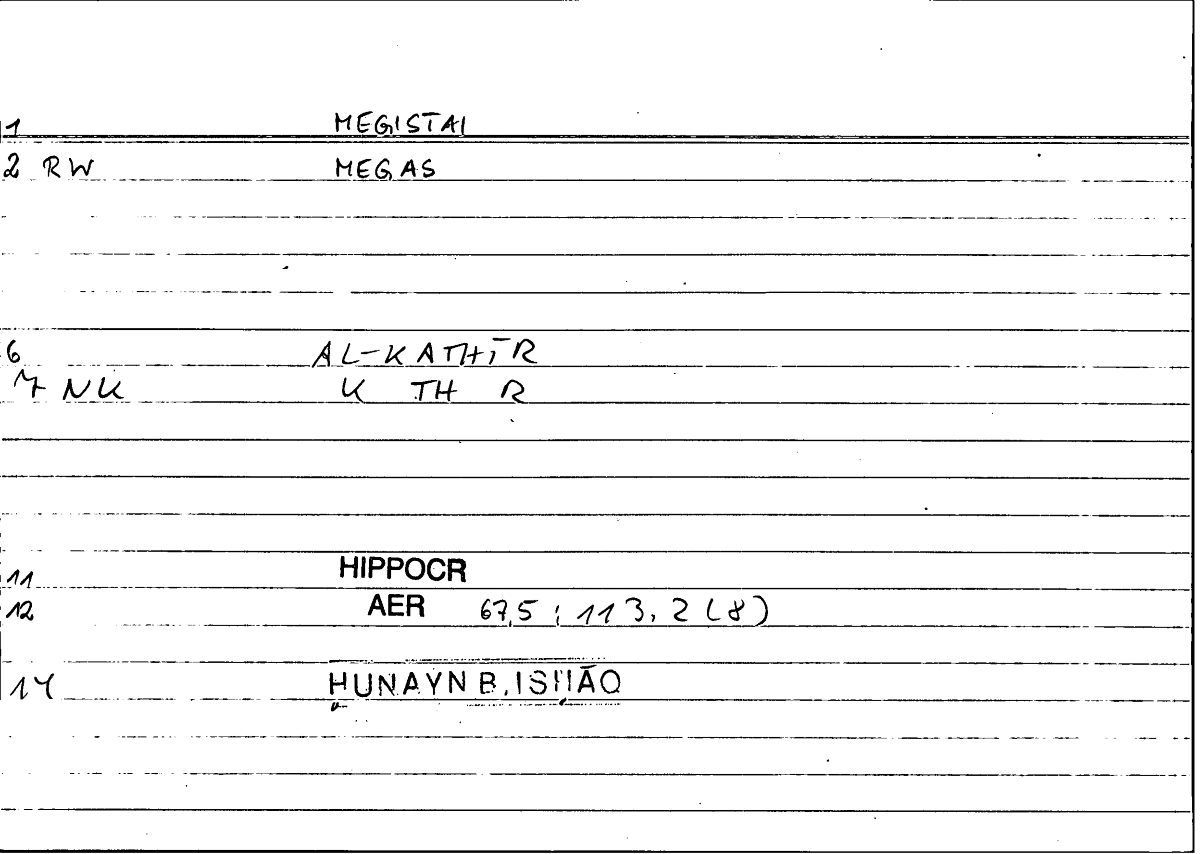 1 MEGISTAI
2 RW MEGAS
6 AL-KATHĪR
7 NK K TH R
11 HIPPOCR
12 AER 67,5 ; 113, 2 (8)
14 ḤUNAYN B. ISḤĀQ